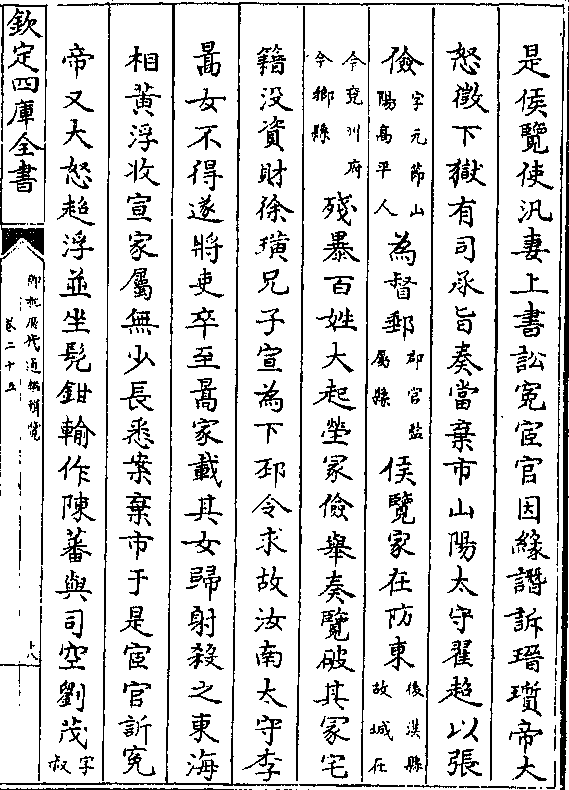 是侯覽使汎妻上書訟冤宦官因緣譖訴瑨瓆帝大
怒徵下獄有司承旨奏當棄市山陽太守翟超以張
儉字元節山陽高平人為督郵郡官監屬縣侯覽家在防東後漢縣故城在
今兗州府今鄉縣殘暴百姓大起塋冢儉舉奏覽破其冢宅
籍没資財徐璜兄子宣為下邳令求故汝南太守李
暠女不得遂將吏卒至暠家載其女歸射殺之東海
相黃浮收宣家屬無少長悉案棄市于是宦官訴冤
帝又大怒超浮並坐髡鉗輸作陳蕃與司空劉茂字叔
欽定四庫全書
御批歷代通鑑輯覽
卷二十五
十八